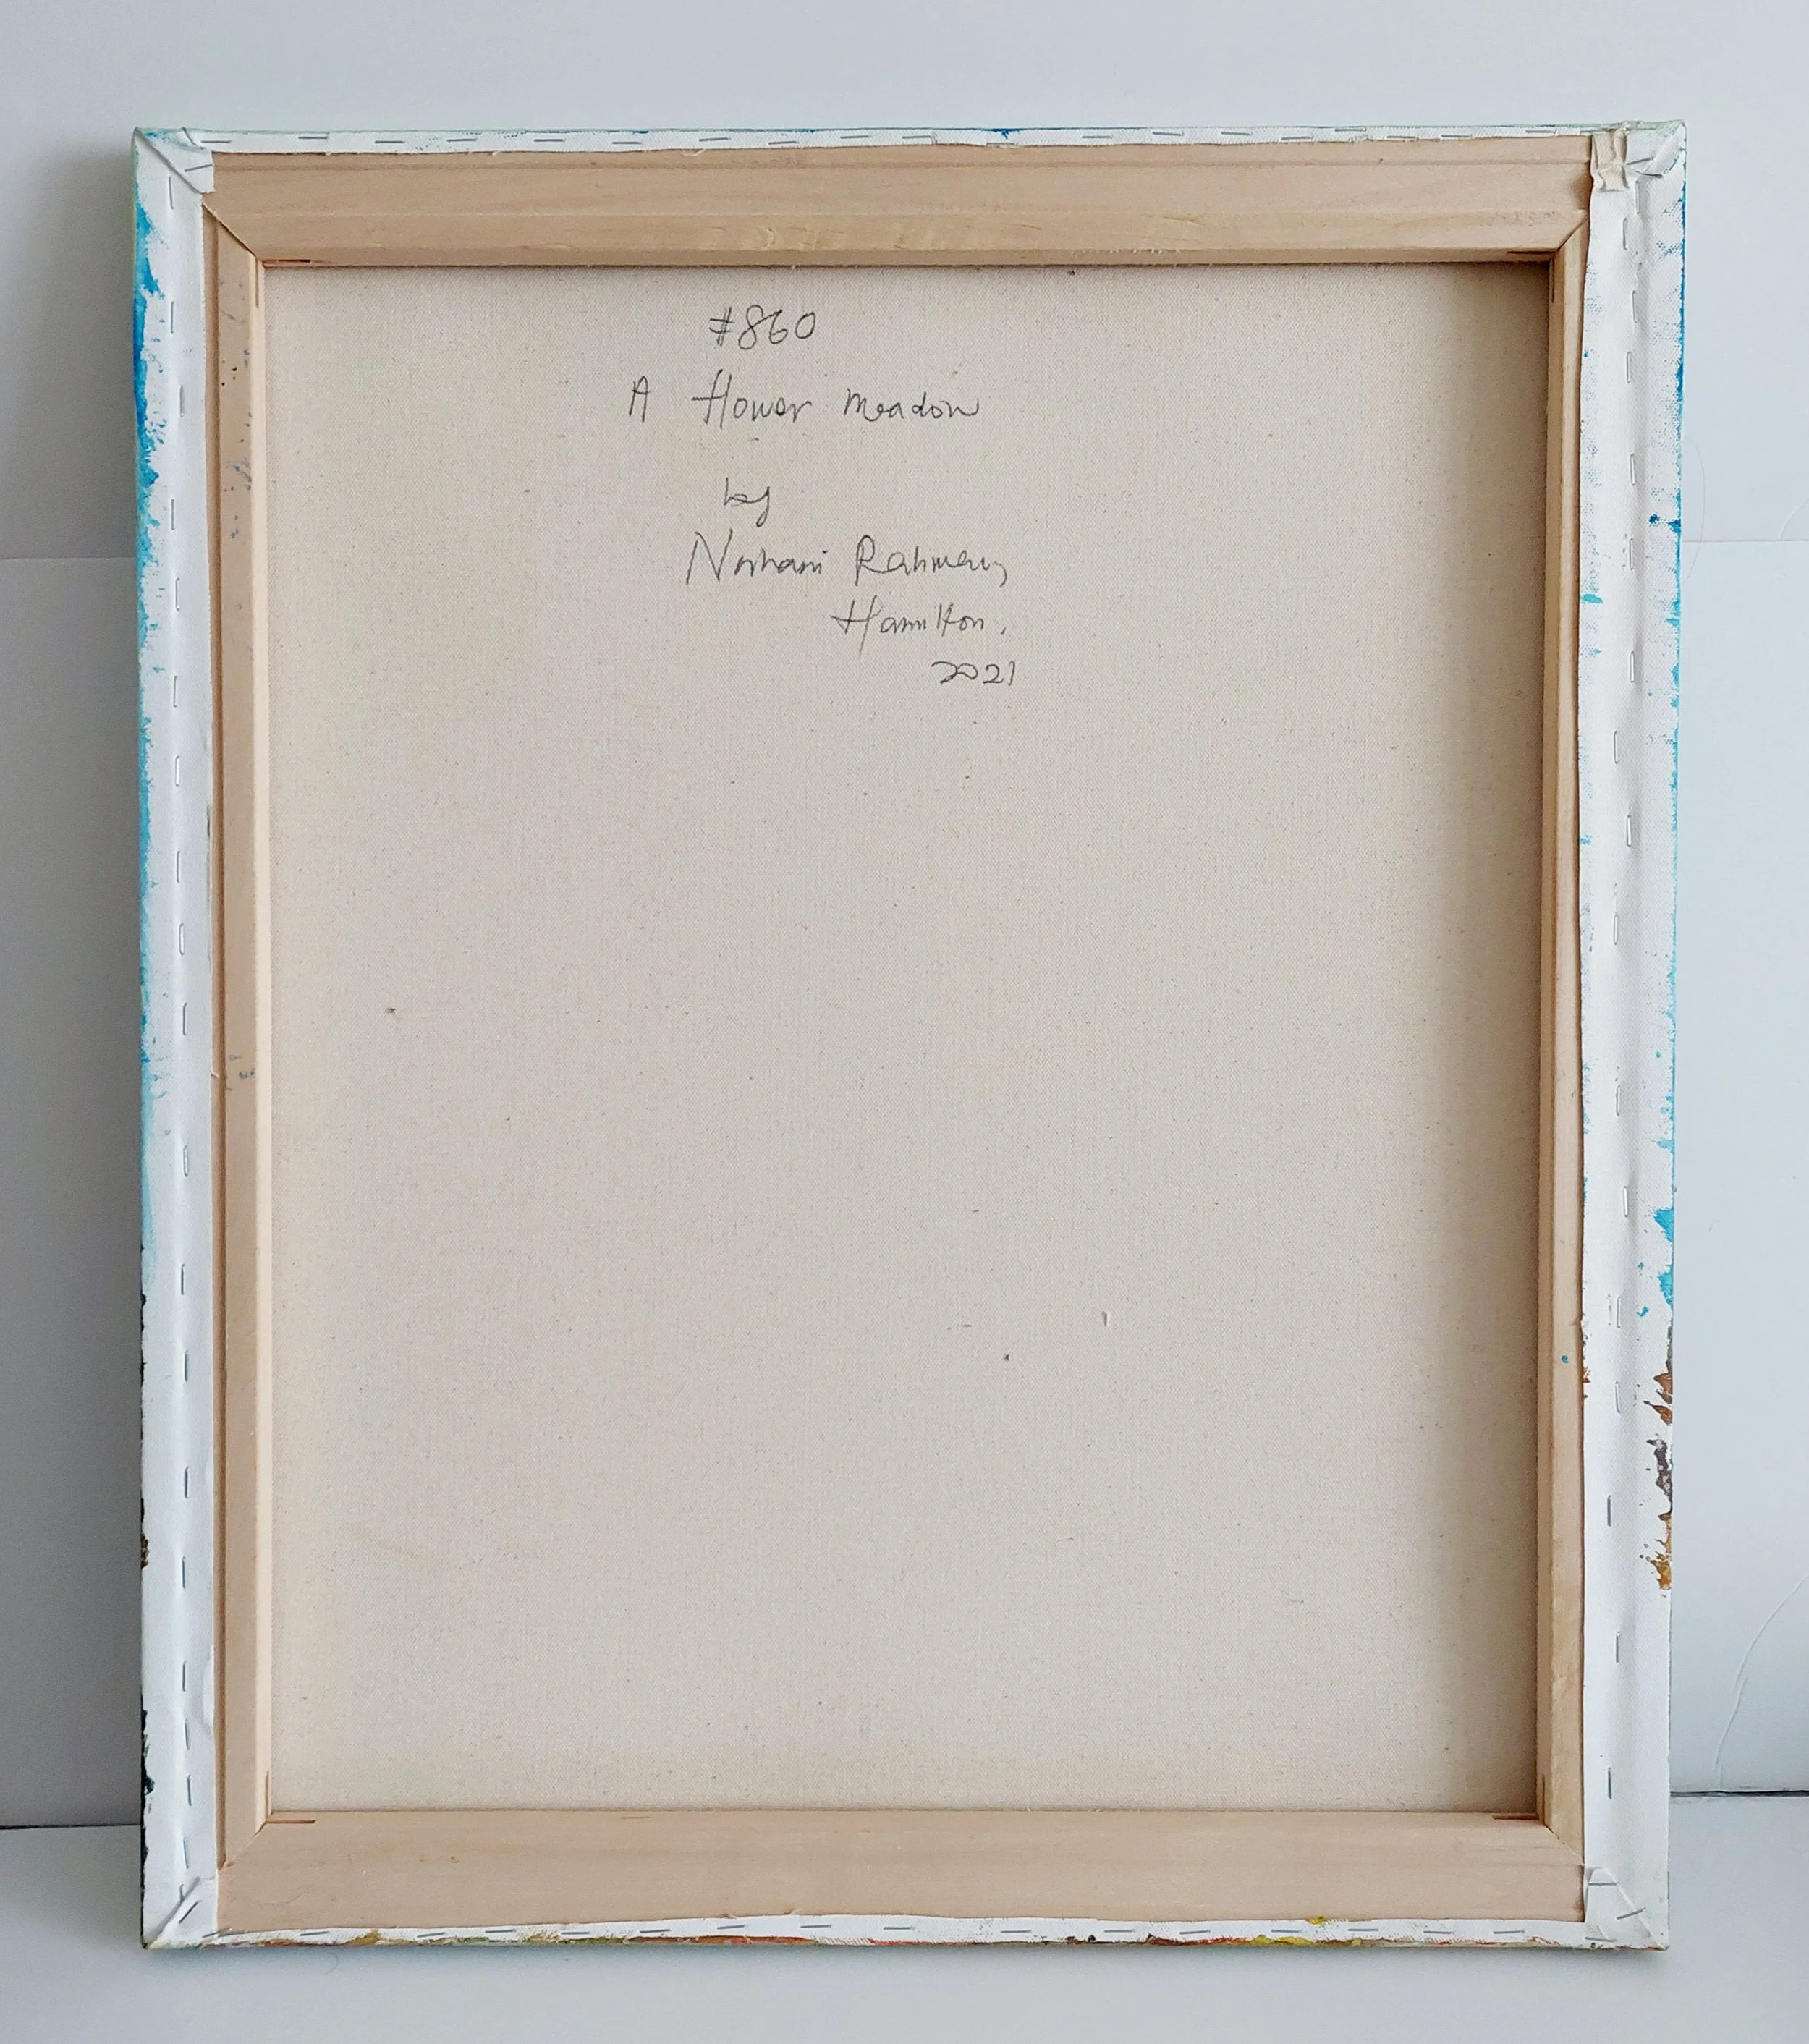 #860
A flower meadow
by
Nishani Rahman,
Hamilton.
2021